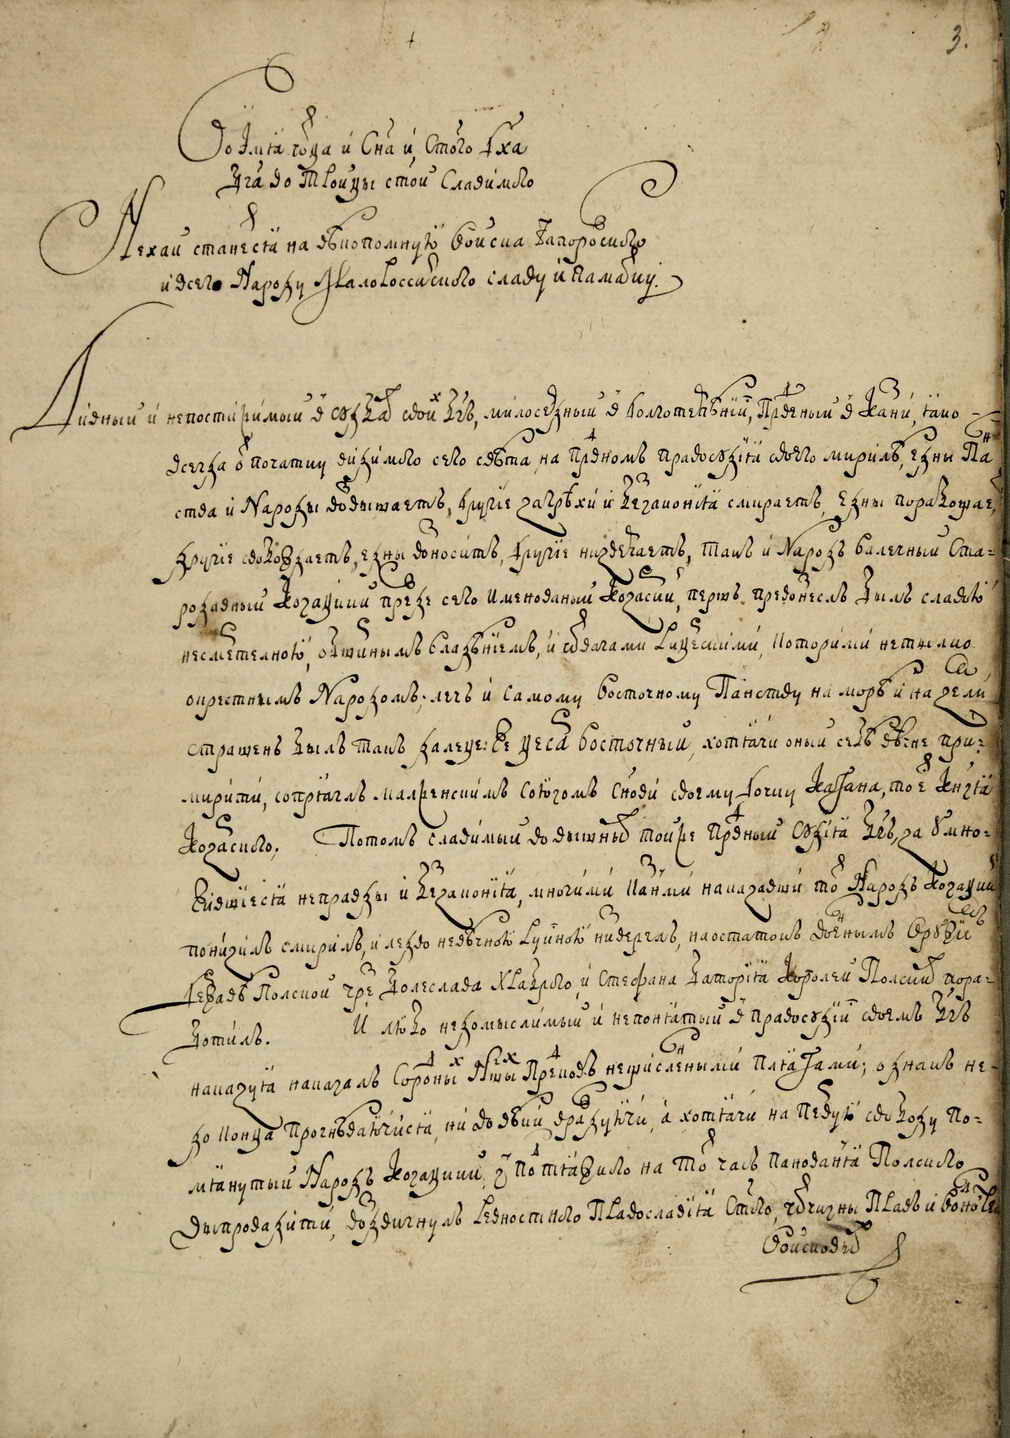 3.
Во Имя ѿца и Сна и Стого Дха
Бга во Троици стой славимого
Нехай станется на вѣкопомную Войска Запорозского
и всего Народу Малороссийского славу и памятку.
Дивный и непостижимый в судбах своих Бгъ, милосердный в долготерпѣнии, праведный в казни, яко
всегда ѿ початку видимого сего свѣта на праведномъ правосудия своего мерилѣ, едны Пан
ства и Народы довышаетъ, другие за грѣхи и беззакония смиряетъ, едны поработщает,
другие свобождаетъ, едны возноситъ, другие низвергаетъ, такъ и Народъ валечный Ста-
рожитный Козацкий прежде сего именованый козарский, первѣ превознеслъ былъ славою
несмертелною, обширнымъ владѣниемъ, и отвагами рицерскими, которими не тылко
окрестнымъ Народомъ, лечъ и самому Восточному Панству на морѣ и на земли
страшенъ былъ такъ далеце: же Цесар Восточный, хотячи оный себѣ вѣчне при-
мирити, сопряглъ малженскимъ союзомъ Сынови своему дочку Кагана, то е Князя
Козарского. Потомъ славимый во вышних той же праведный Судия Бгъ, за умно-
жившиеся неправды и беззакония, многими казнями наказавши той Народъ козацкий
понизилъ, смирилъ, и ледво невѣчною руиною низверглъ, наостатокъ военнымъ оружиемъ
Державѣ Полской чрез Болеслава Храброго, и Стефана Батория Королей Полских, пора-
ботилъ. И любо недомыслимый и непонятый в правосудии своемъ Бгъ
наказуя наказалъ Нших Продковъ незчислеными плягами; однакъ не
до конца прогнѣваючися, ни во вѣки враждуючи, а хотячи на первую свободу по-
мянутый Народъ козацкий, з подтяжкого на той часъ панованя Полского
выпровадити, воздвигнулъ ревностного Православия Стого, отчизны правъ и волностей
Войсковых